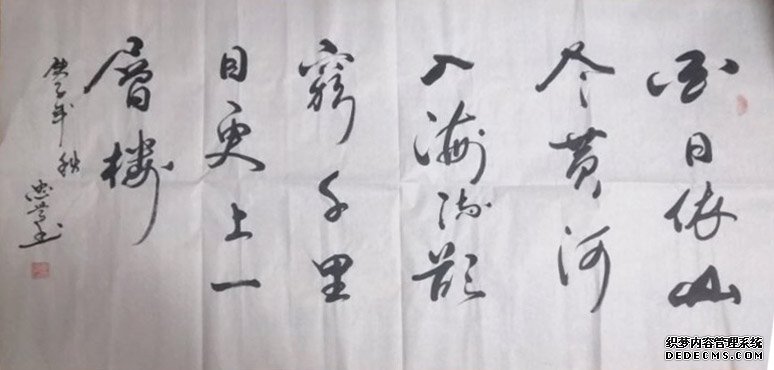 白日依山
尽黄河
入海流欲
窮千里
目更上一
層楼
庚子年秋
织梦内容管理系统
DEDECMS.COM